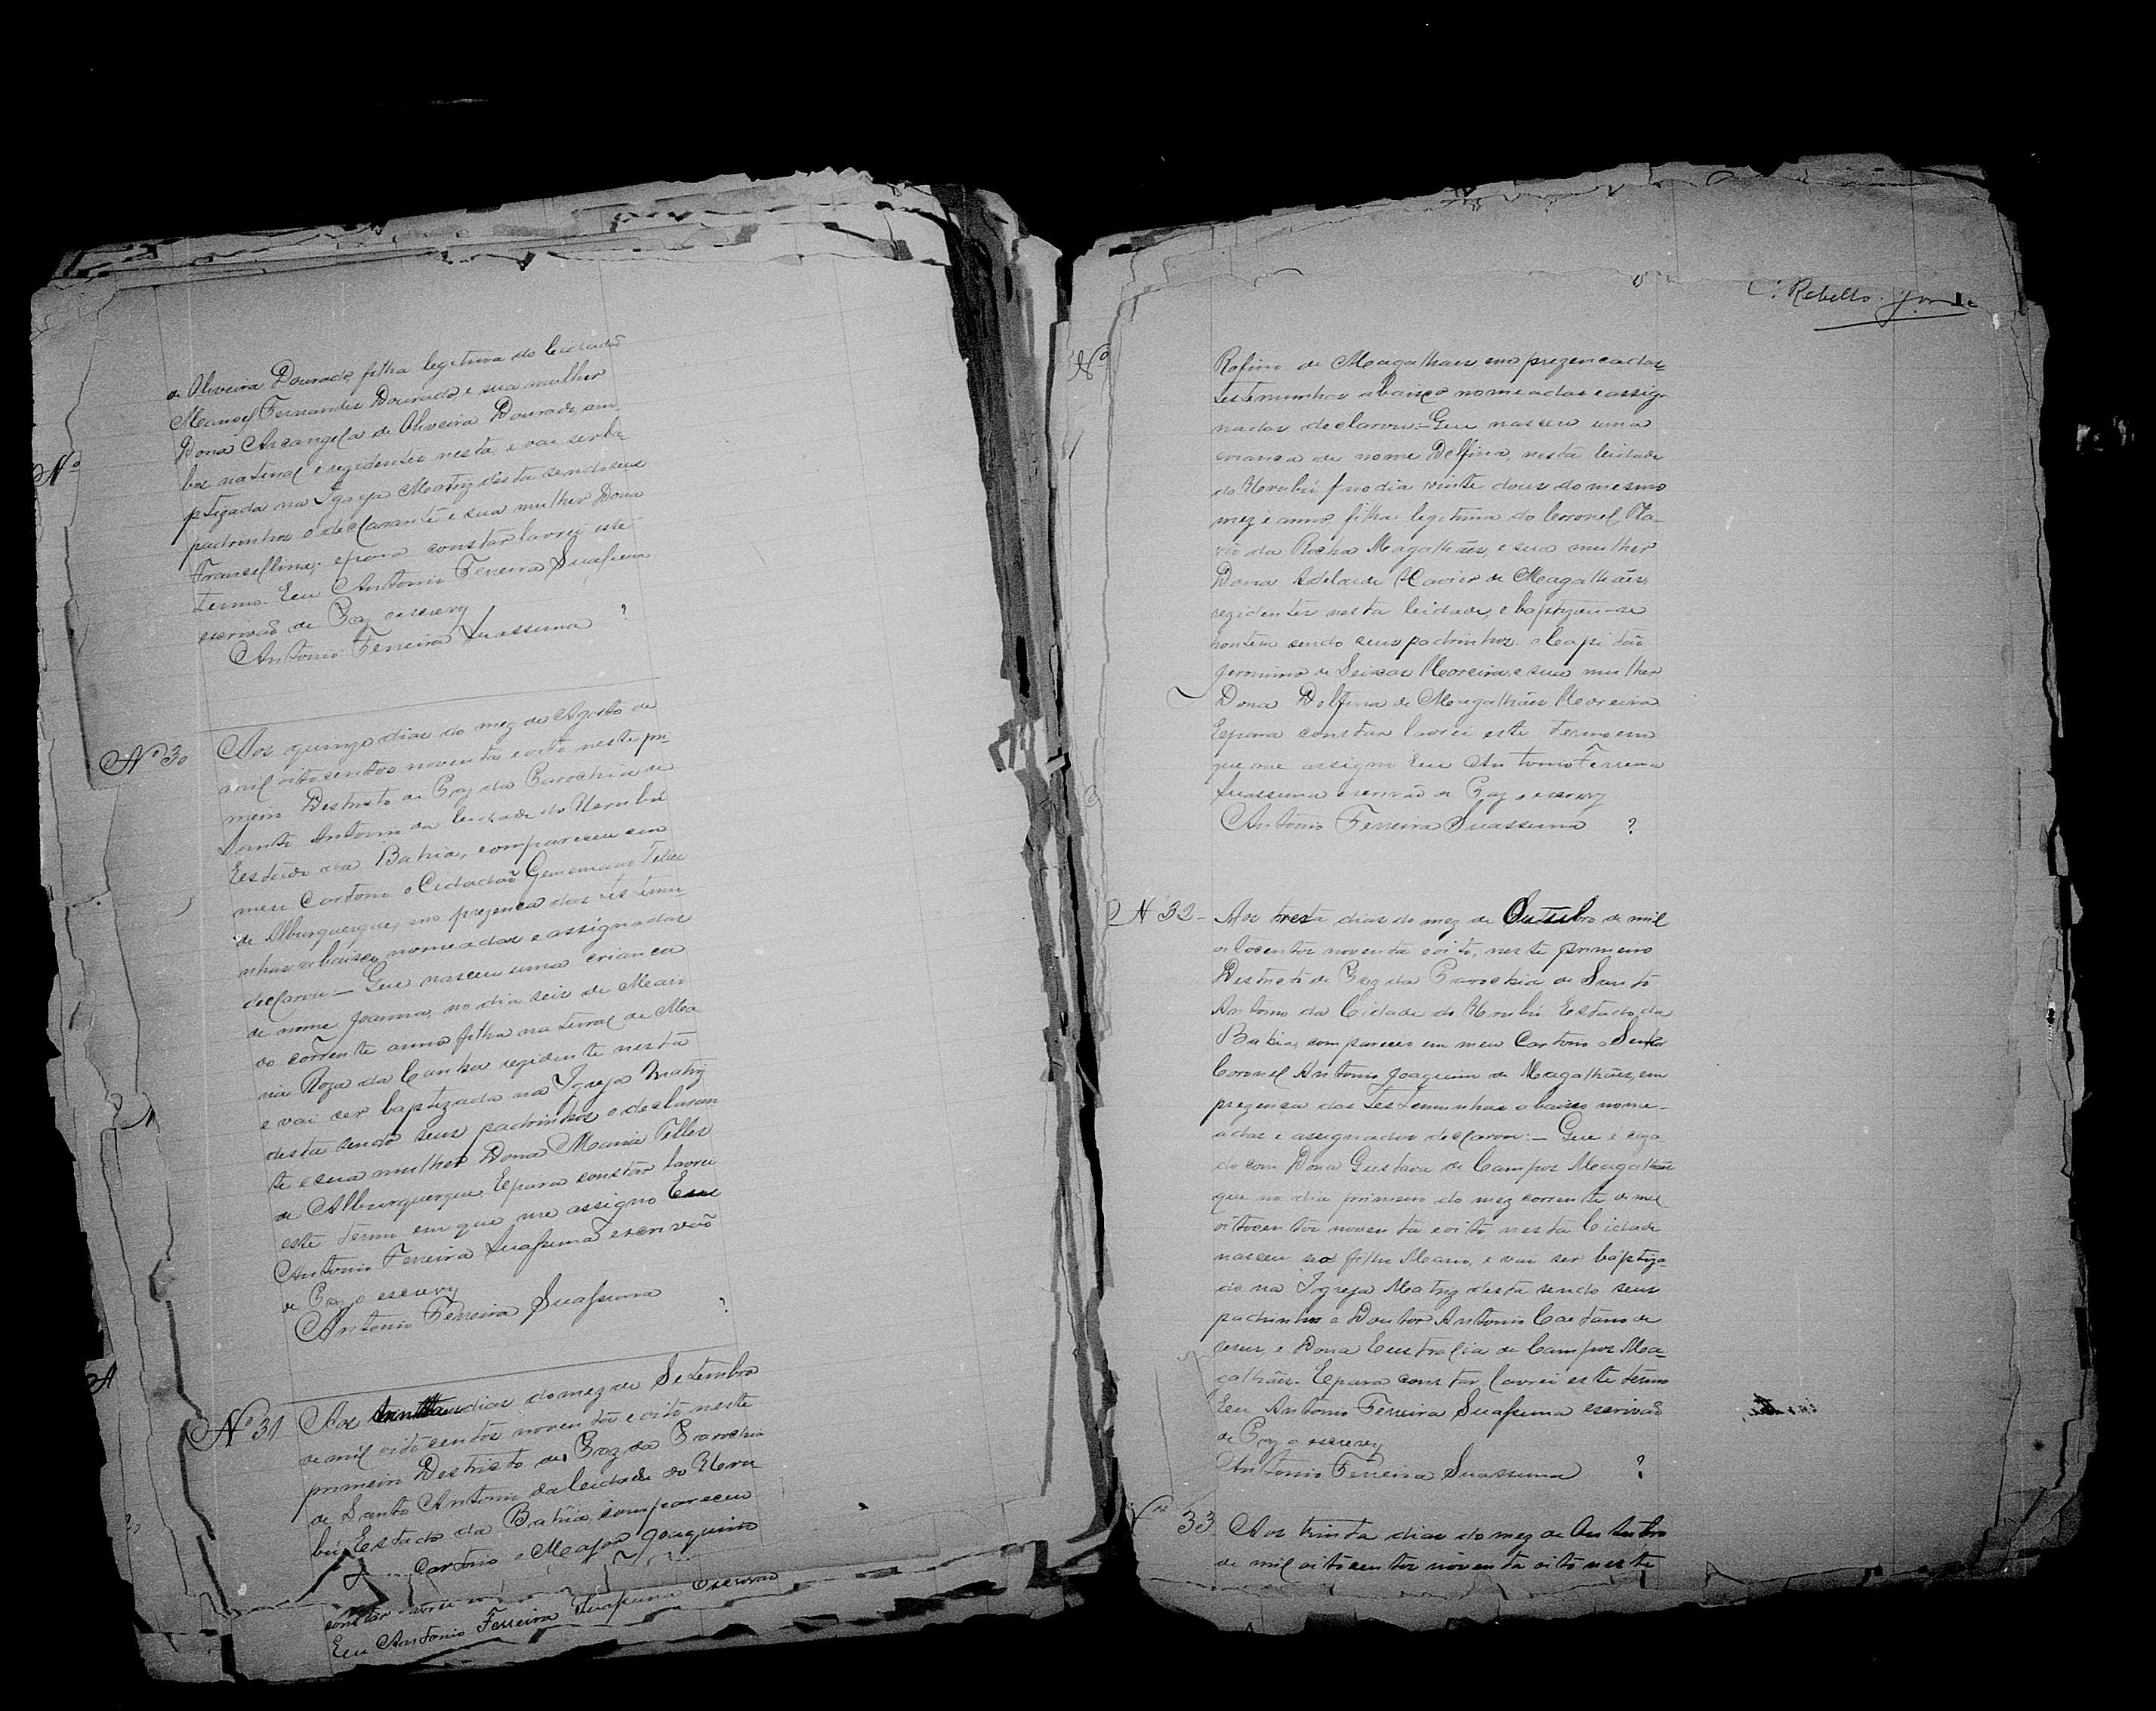 de Oliveira Dourado, filha legitima do Cidadão
Manoel Fernandes Dourado e sua mulher
Dona Arcangela de Oliveira Dourado, am-
bos natural e rezidentes nesta, e vai ser ba-
Nº
ptizada na Igreja Matriz desta sendo seus
padrinhos o declarante e sua mulher Dona
epara constar lavrei este
termo. Eu Antonio Ferreira Suassuna
escrivão de Paz o escrevy
Antonio Ferreira Suassuna ?
Nº 30
Aos quinze dias do mez de Agosto de
mil oitocentos noventa e oito neste pri-
meiro Destricto de Paz da Parochia de
Santo Antonio da Cidade do Urubú
Estado da Bahia, compareceu em
meu Cartorio o Cidadão Telles
de Alburquerque, em prezenca das testemu-
nhas abaixo nomeadas e assignadas
declarou — Que nasceu uma crianca
de nome Joanna, no dia seis de Maio
do corrente anno filha natural de Ma-
ria Roza da Cunha rezidente nesta
e vai ser baptizada na Igreja Matriz
desta sendo seus padrinhos o declaran-
te e sua mulher Dona Maria Telles
de Alburquerque. Epara constar lavrei
este termo em que me assigno Eu
Antonio Ferreira Suassuna escrivão
de Paz o escrevy
Antonio Ferreira Suassuna ?
Nº 31
Aos dias do mez de Setembro
de mil oitocentos noventa e oito neste
primeiro Destricto de Paz da Parochia
de Santo Antonio da Cidade do Uru-
bú Estado da Bahia, compareceu
Cartorio o Major Joaquim
constar lavrei
Eu Antonio Ferreira Suassuna Escrivão
Rebello
Nº
Rofino de Magalhães em prezenca das
testemunhas abaixo nomeadas e assig-
nadas declarou:— Que nasceu uma
crianca de nome Delfina, nesta Cidade
do Urubú no dia vinte dous do mesmo
mez e anno filha legitima do Coronel Fla-
vio da Rocha Magalhães, e sua mulher
Dona Adelaide Xavier de Magalhães,
rezidentes nesta Cidade, e baptizou-se
hontem sendo seus padrinhos o Capitão
Jeronimo de Seixas Moreira e sua mulher
Dona Delfina de Magalhães Moreira
Epara constar lavrei este termo em
que me assigno Eu Antonio Ferreira
Suassuna escrivão de Paz o escrevy
Antonio Ferreira Suassuna ?
N 32-
Aos dias do mez de Outubro de mil
oitocentos noventa e oito, neste primeiro
Destricto de Paz da Parochia de Santo
Antonio da Cidade do Urubú Estado da
Bahia, compareceu em meu Cartorio o
Coronel Antonio Joaquim de Magalhães, em
prezenca das testemunhas abaixo nome-
adas e assignadas declarou:— Que é caza-
do com Dona Gustava de Campos Magalhães
que no dia primeiro do mez corrente de mil
oitocentos noventa e oito nesta Cidade
nasceu seo filho Mario, e vai ser baptiza-
do na Igreja Matriz desta sendo seus
padrinhos o Doutor Antonio Caetano de
Jesus, e Dona Eustralia de Campos Ma-
galhães. Epara constar lavrei este termo
Eu Antonio Ferreira Suassuna escrivão
de Paz o escrevy
Antonio Ferreira Suassuna ?
Nº 33
Aos trinta dias do mez de Outubro
de mil oitocentos noventa oito neste